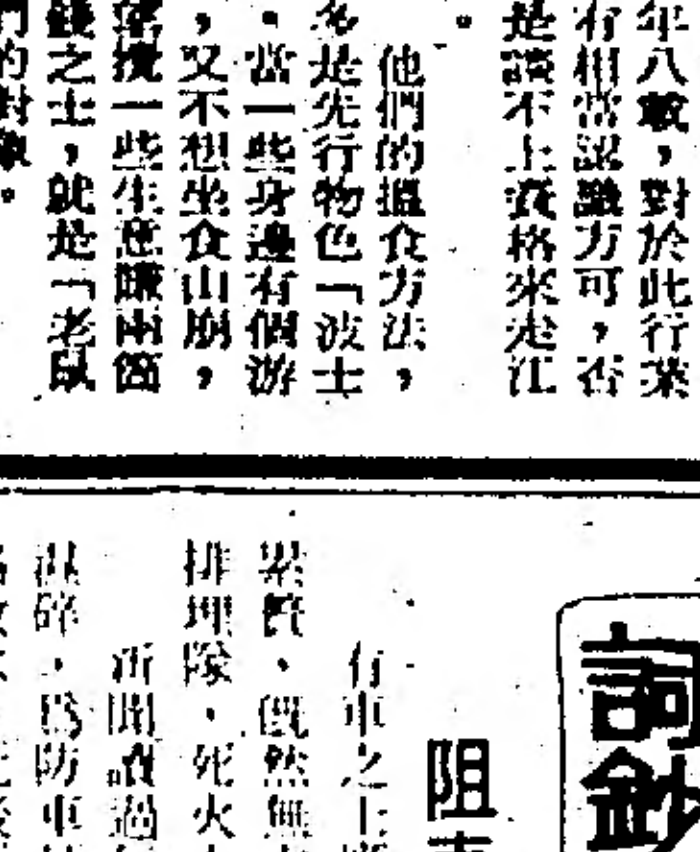 年八載，對於此行業
有相當認識方可，否
是談不上資格來走江
。
他們的搵食方法，
多是先行物色「波士
。當一些身邊有個游
，又不想坐食山崩，
攪一些生意賺兩箇
錢之士，就是「老鼠
們的對象。
詞鈔
阻
有車之士
累贅，既然無
排埋隊，死火
新聞讀過
濕碎，爲防車